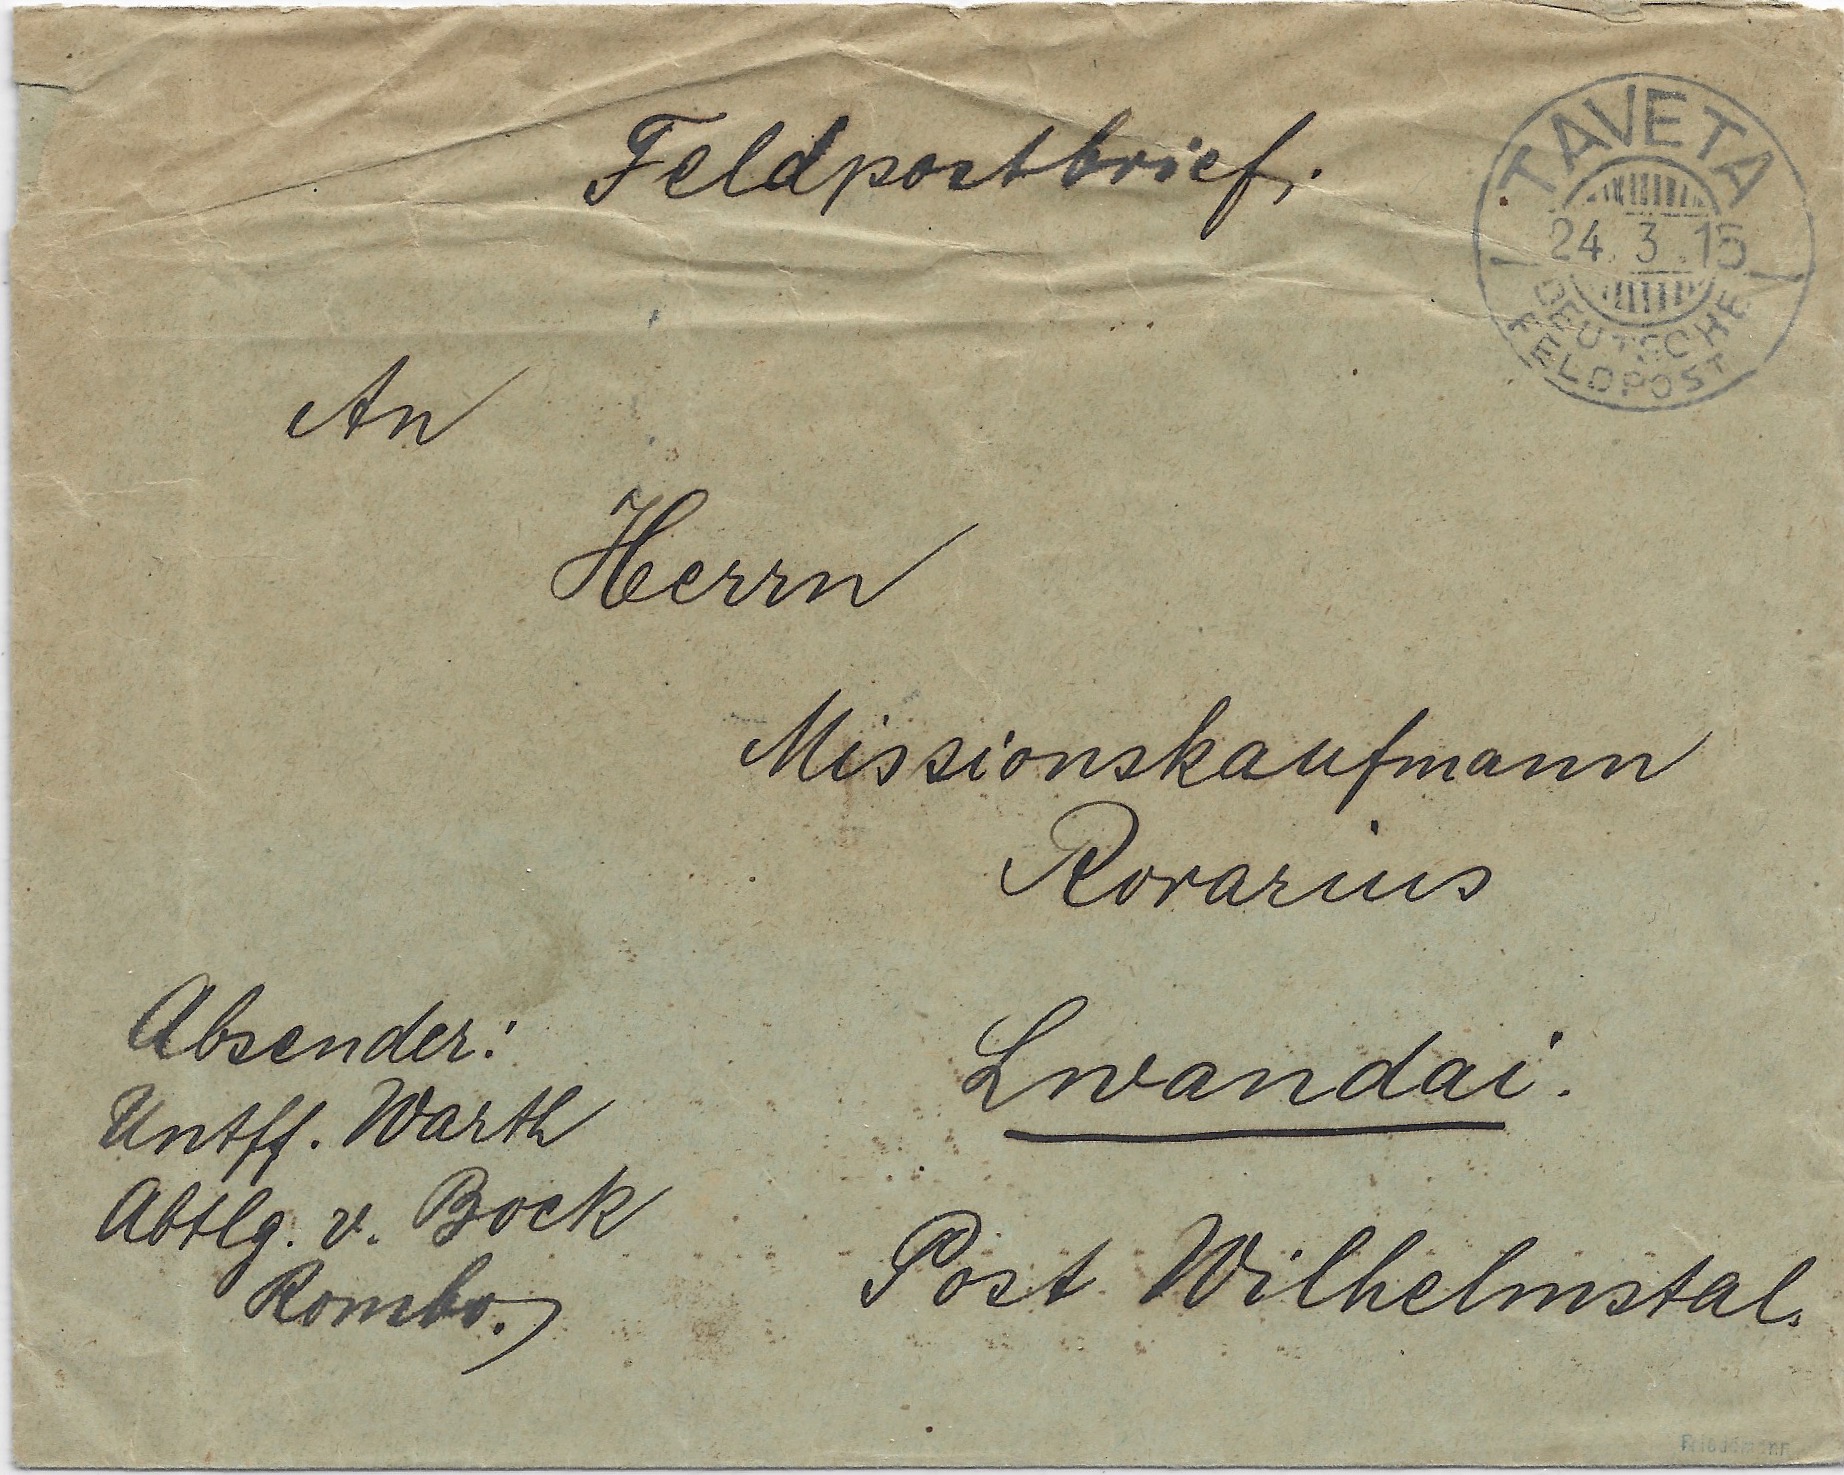 Feldpostbrief.
TAVETA
24.3.15
DEUTSCHE
FELDPOST
An
Herrn
Missionskaufmann
Rovarius
Lwandai.
Post Wilhelmstal.
Absender:
Untff. Warth
Abtlg. v. Bock
Rombo.